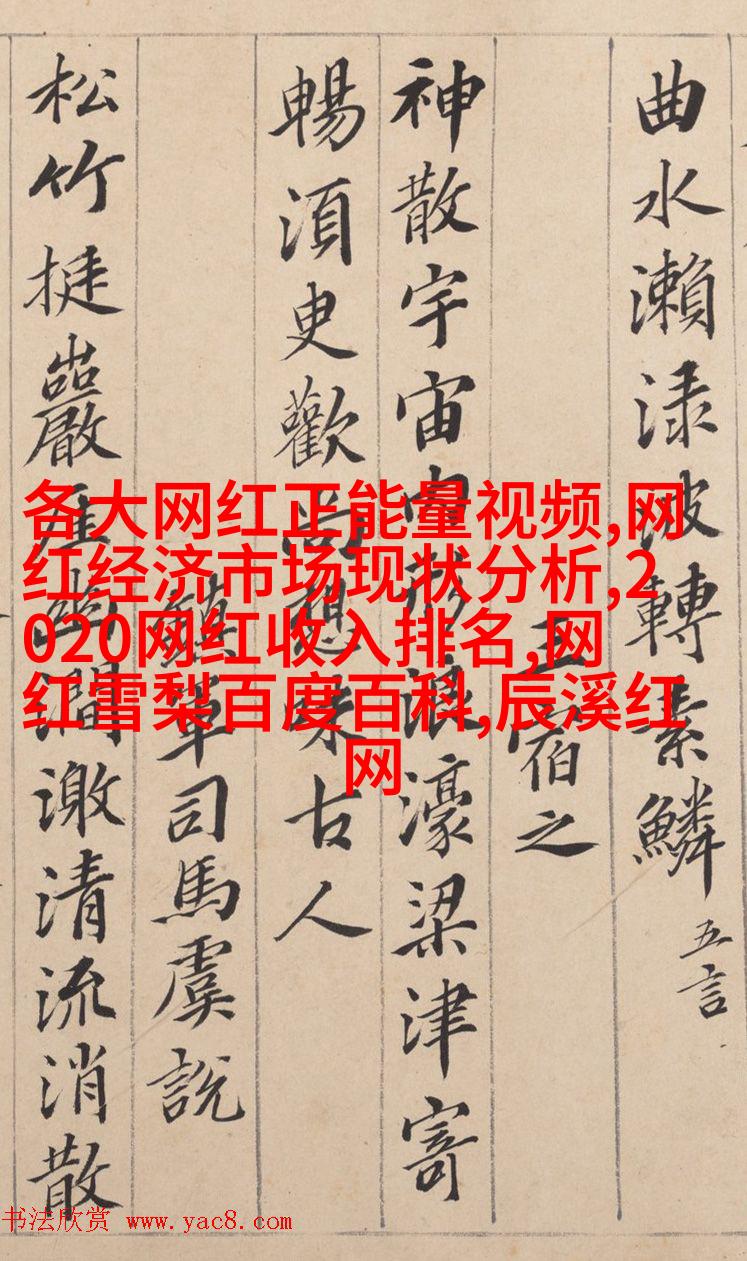 曲水瀨渌波轉素鱗 五言
王宿之
神散宇宙內形浪濠梁津寄
暢湏臾歡尚想味古人
鎮軍司馬虞說
松竹挺巖崖幽澗激清流消散
各大网红正能量视频,网
红经济市场现状分析,2
020网红收入排名,网
红雪梨百度百科,辰溪红
网
书法欣赏 www.yac8.com